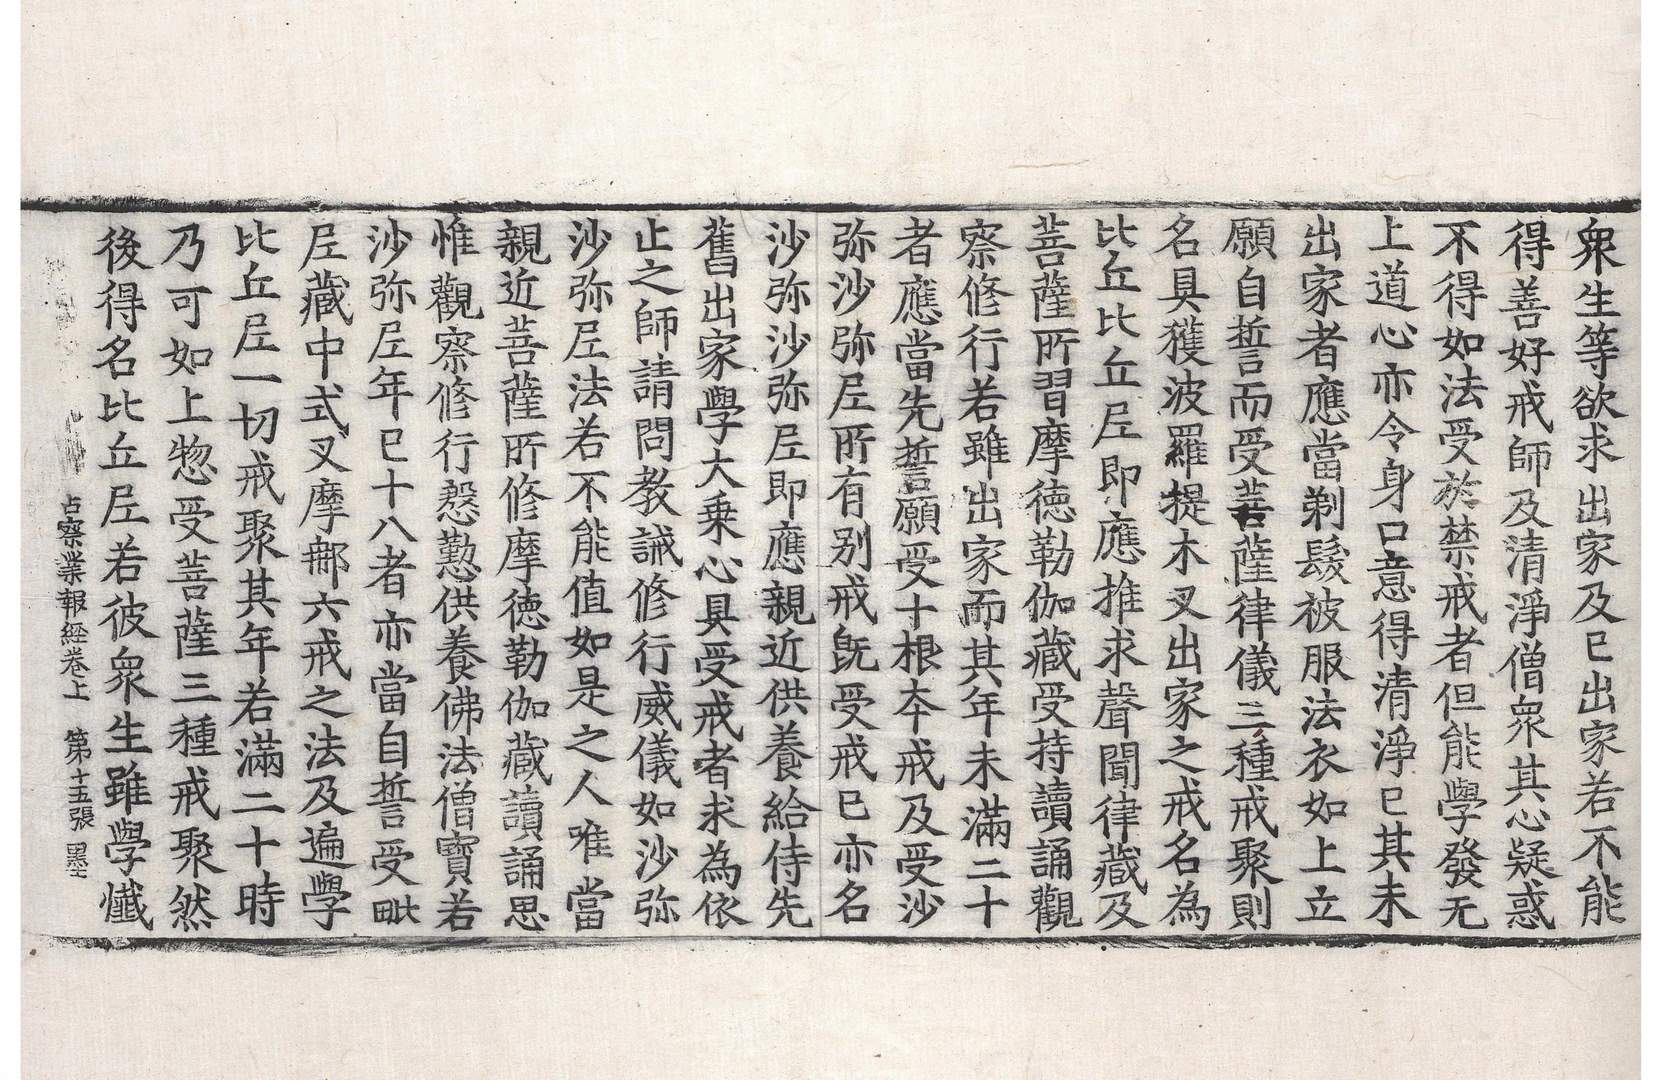 衆生等欲求出家及已出家若不能
得善好戒師及清淨僧衆其心疑惑
不得如法受於禁戒者但能學發无
上道心亦令身口意得清淨已其未
出家者應當剃髮被服法衣如上立
願自誓而受菩薩律儀三種戒聚則
名具獲波羅提木叉出家之戒名為
比丘比丘尼即應推求聲聞律藏及
菩薩所習摩德勒伽藏受持讀誦觀
察修行若雖出家而其年未滿二十
者應當先誓願受十根本戒及受沙
弥沙弥尼所有別戒既受戒已亦名
沙弥沙弥尼即應親近供養給侍先
舊出家學大乗心具受戒者求為依
止之師請問教誡修行威儀如沙弥
沙弥尼法若不能值如是之人唯當
親近菩薩所修摩德勒伽藏讀誦思
惟觀察修行慇懃供養佛法僧寶若
沙弥尼年已十八者亦當自誓受毗
尼藏中式叉摩那六戒之法及遍學
比丘尼一切戒聚其年若滿二十時
乃可如上惣受菩薩三種戒聚然
後得名比丘尼若彼衆生雖學懺
占察業報經卷上 第十五張 墨